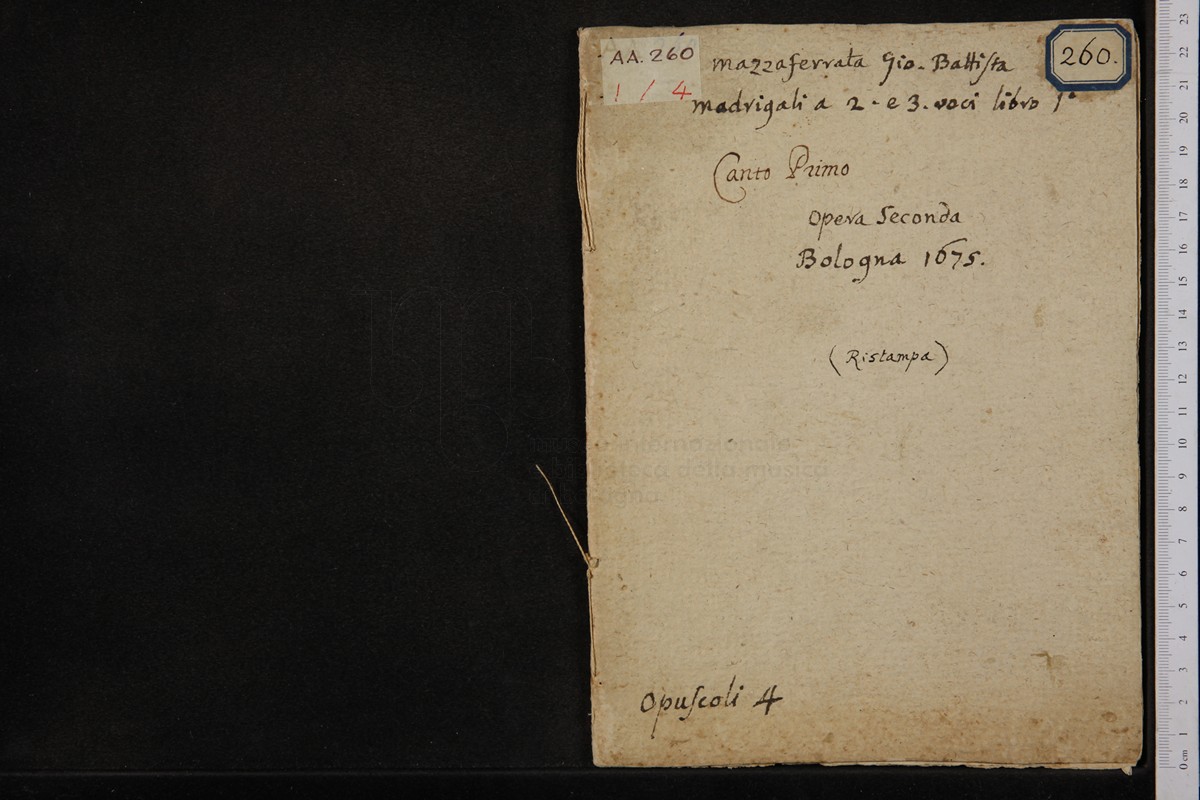 AA. 260
1 / 4
260.
Mazzaferrata Gio. Battista
Madrigali a 2. e 3. voci libro 1°
Canto Primo
Opera Seconda
Bologna 1675.
(Ristampa)
internazionale
biblioteca della musica
Opuscoli 4
23
22
21
20
19
18
17
16
15
14
13
12
11
10
9
8
7
6
5
4
3
2
1
0 cm